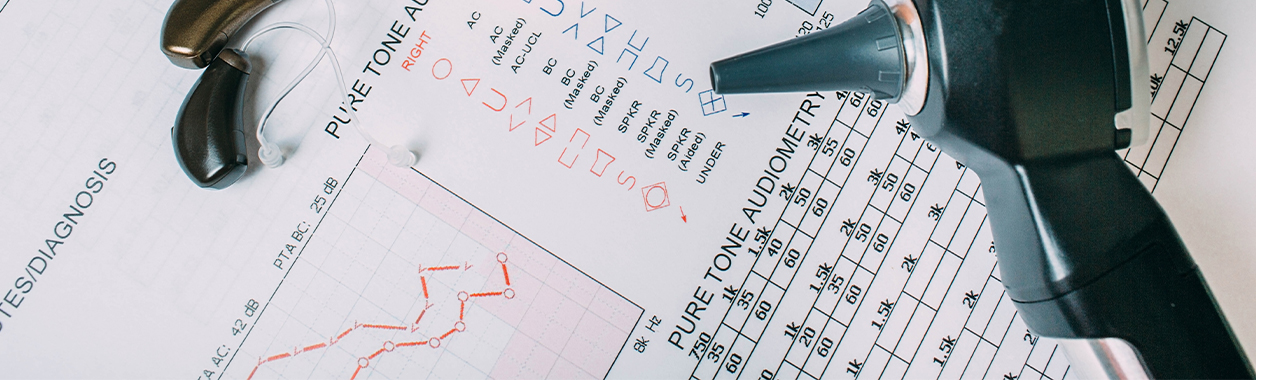 PURE TONE AU
RIGHT
AC
AC
(Masked)
AC-UCL
BC
BC
(Masked)
BC
(Masked)
SPKR
SPKR
(Masked)
SPKR
(Aided)
UNDER
PTA BC: 25 dB
AC: 42 dB
TES/DIAGNOSIS
8k Hz
PURE TONE AUDIOMETRY
750 1k 1.5k 2k 3k
35 35 40 50 55 60
60 60 60 60 60
1k 1.5k 2k 3k 4k
20 35 50 50
60 60 60 60
1k 1.5k 2k 3k
1.5k 2k
12.5k
100
120 125